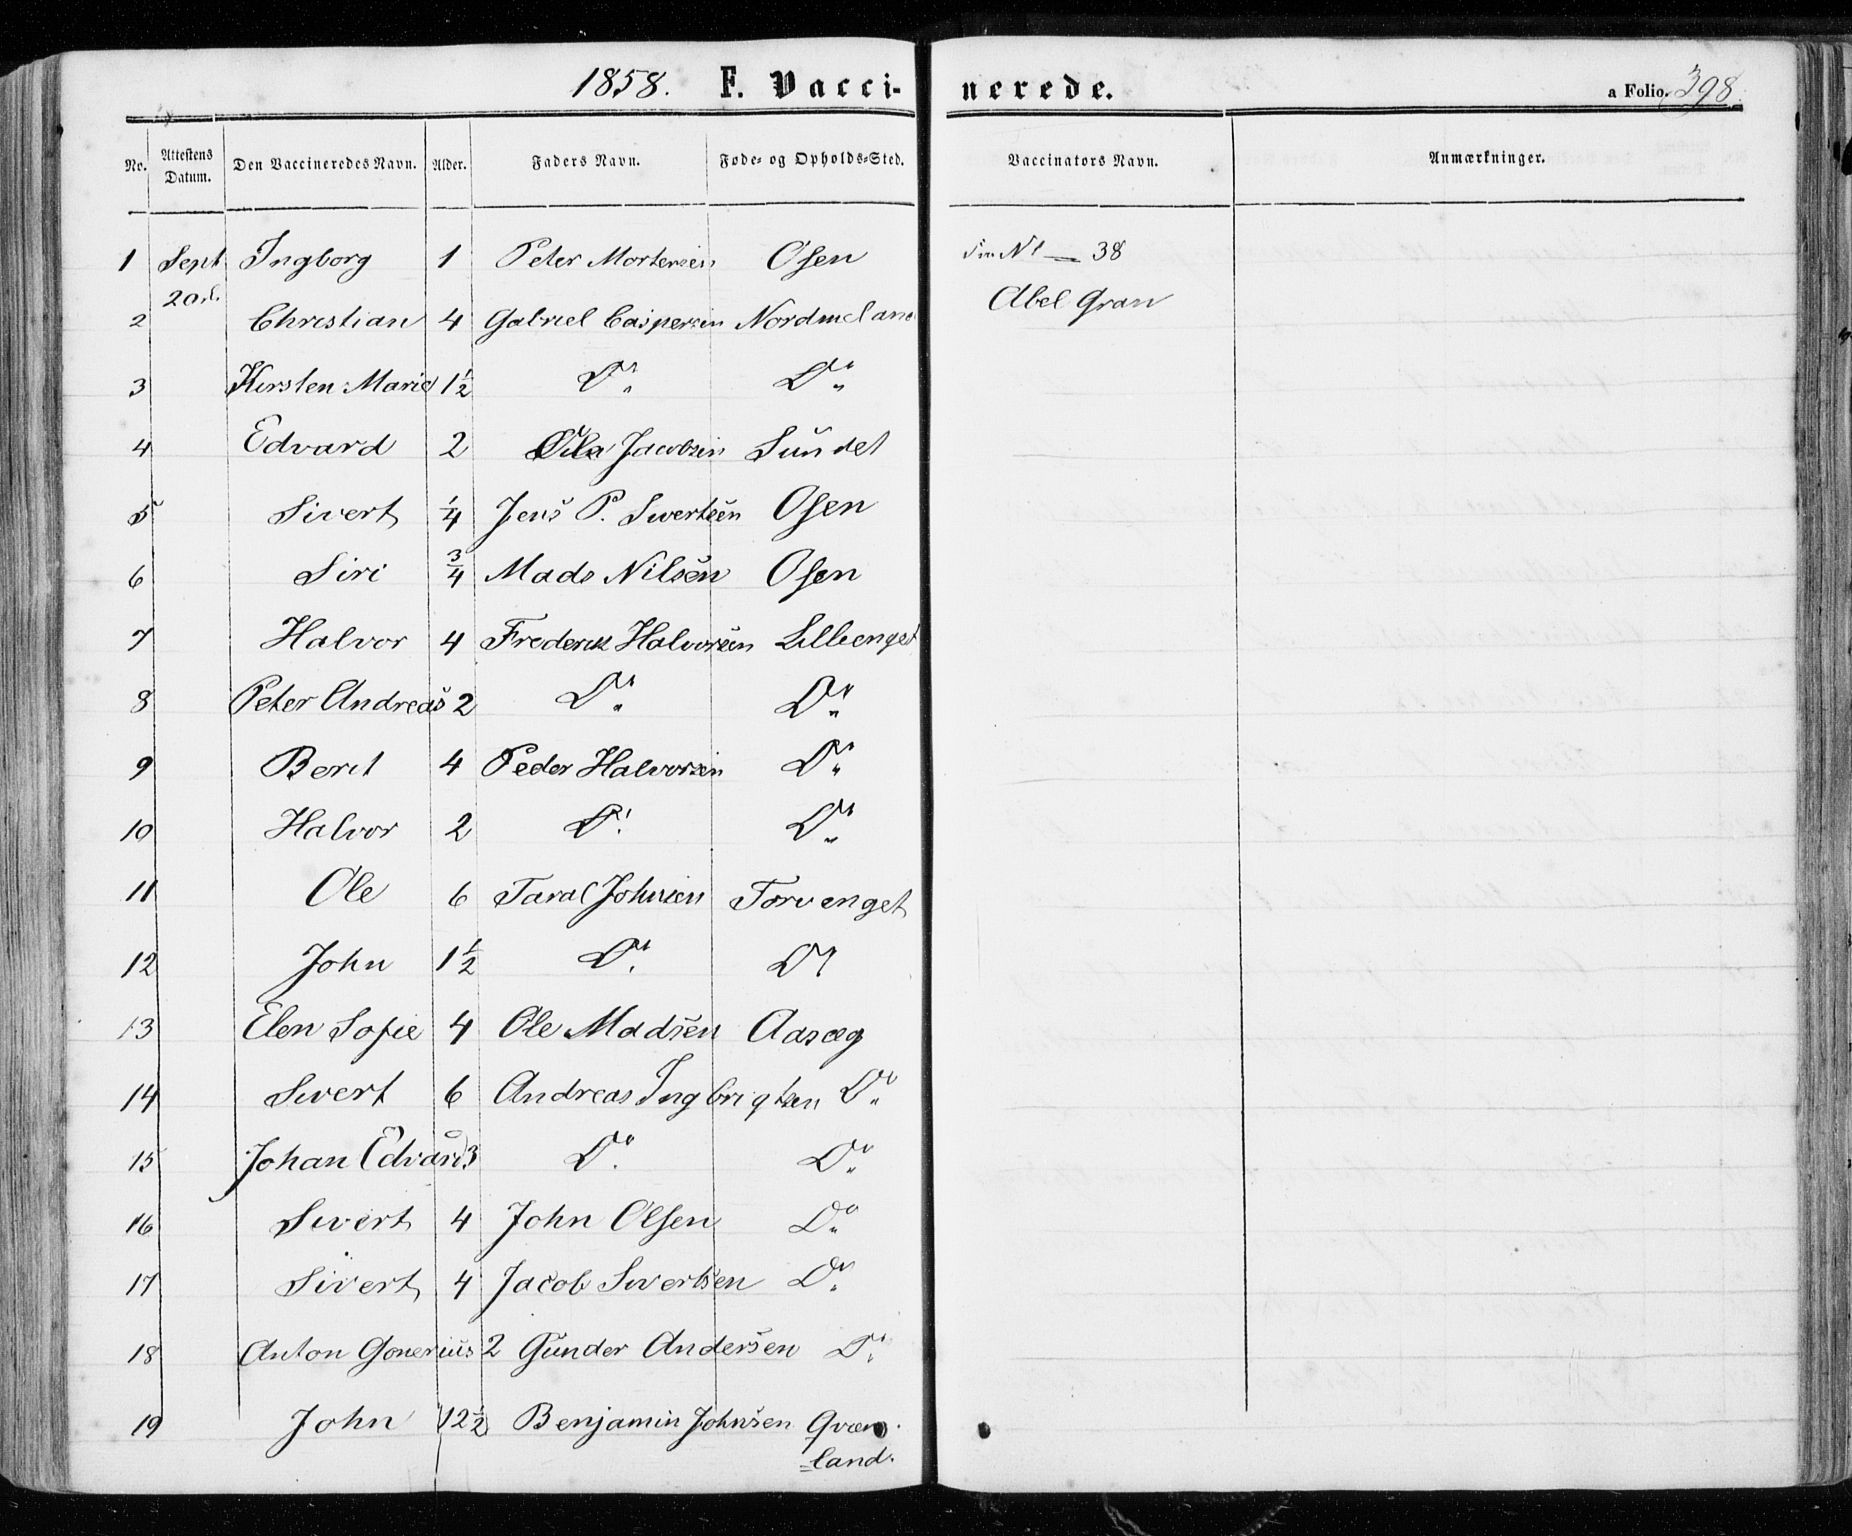 1858. F. Vacci-nerede. a Folio. 398.
No. Attestens Datum. Den Vaccineredes Navn. Alder. Faders Navn. Føde- og Opholds-Sted. Vaccinators Navn. Anmærkninger.
1 Sept Ingborg 1 Peter Mortensen Osen 38
20d. Abel Gran
2 Christian 4 Gabriel Caspersen Nordmeland
3 Kirsten Marie 1½ Do Do
4 Edvard 2 Ola Jacobsen Sundet
5 Sivert ¼ Jens P. Sivertsen Osen
6 Siri ¾ Mads Nilsen Osen
7 Halvor 4 Frederik Halvorsen Lillienget
8 Peter Andreas 2 Do Do
9 Berit 4 Peder Halvorsen Do
10 Halvor 2 Do Do
11 Ole 6 Taral Johnsen Torvenget
12 John 1½ Do Do
13 Elen Sofie 4 Ole Madsen Aasæg
14 Sivert 6 Andreas Ingbrigtsen Do
15 Johan Edvard 3 Do Do
16 Sivert 4 John Olsen Do
17 Sivert 4 Jacob Sivertsen Do
18 Anton Gonerius 2 Gunder Andersen Do
19 John 12½ Benjamin Johnsen Qvæn
=land.